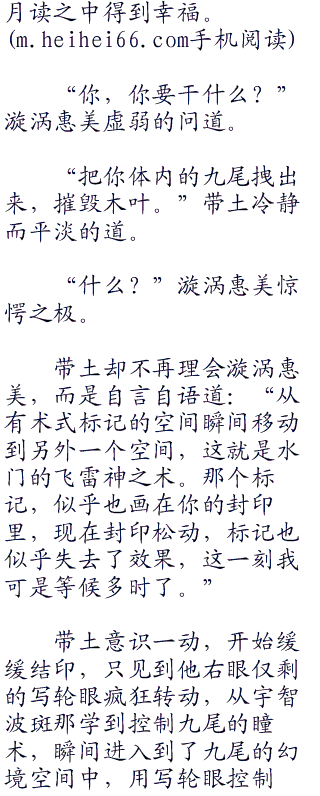 月读之中得到幸福。
(m.heihei66.com手机阅读)
“你，你要干什么？”
漩涡惠美虚弱的问道。
“把你体内的九尾拽出
来，摧毁木叶。”带土冷静
而平淡的道。
“什么？”漩涡惠美惊
愕之极。
带土却不再理会漩涡惠
美，而是自言自语道：“从
有术式标记的空间瞬间移动
到另外一个空间，这就是水
门的飞雷神之术。那个标
记，似乎也画在你的封印
里，现在封印松动，标记也
似乎失去了效果，这一刻我
可是等候多时了。”
带土意识一动，开始缓
缓结印，只见到他右眼仅剩
的写轮眼疯狂转动，从宇智
波斑那学到控制九尾的瞳
术，瞬间进入到了九尾的幻
境空间中，用写轮眼控制